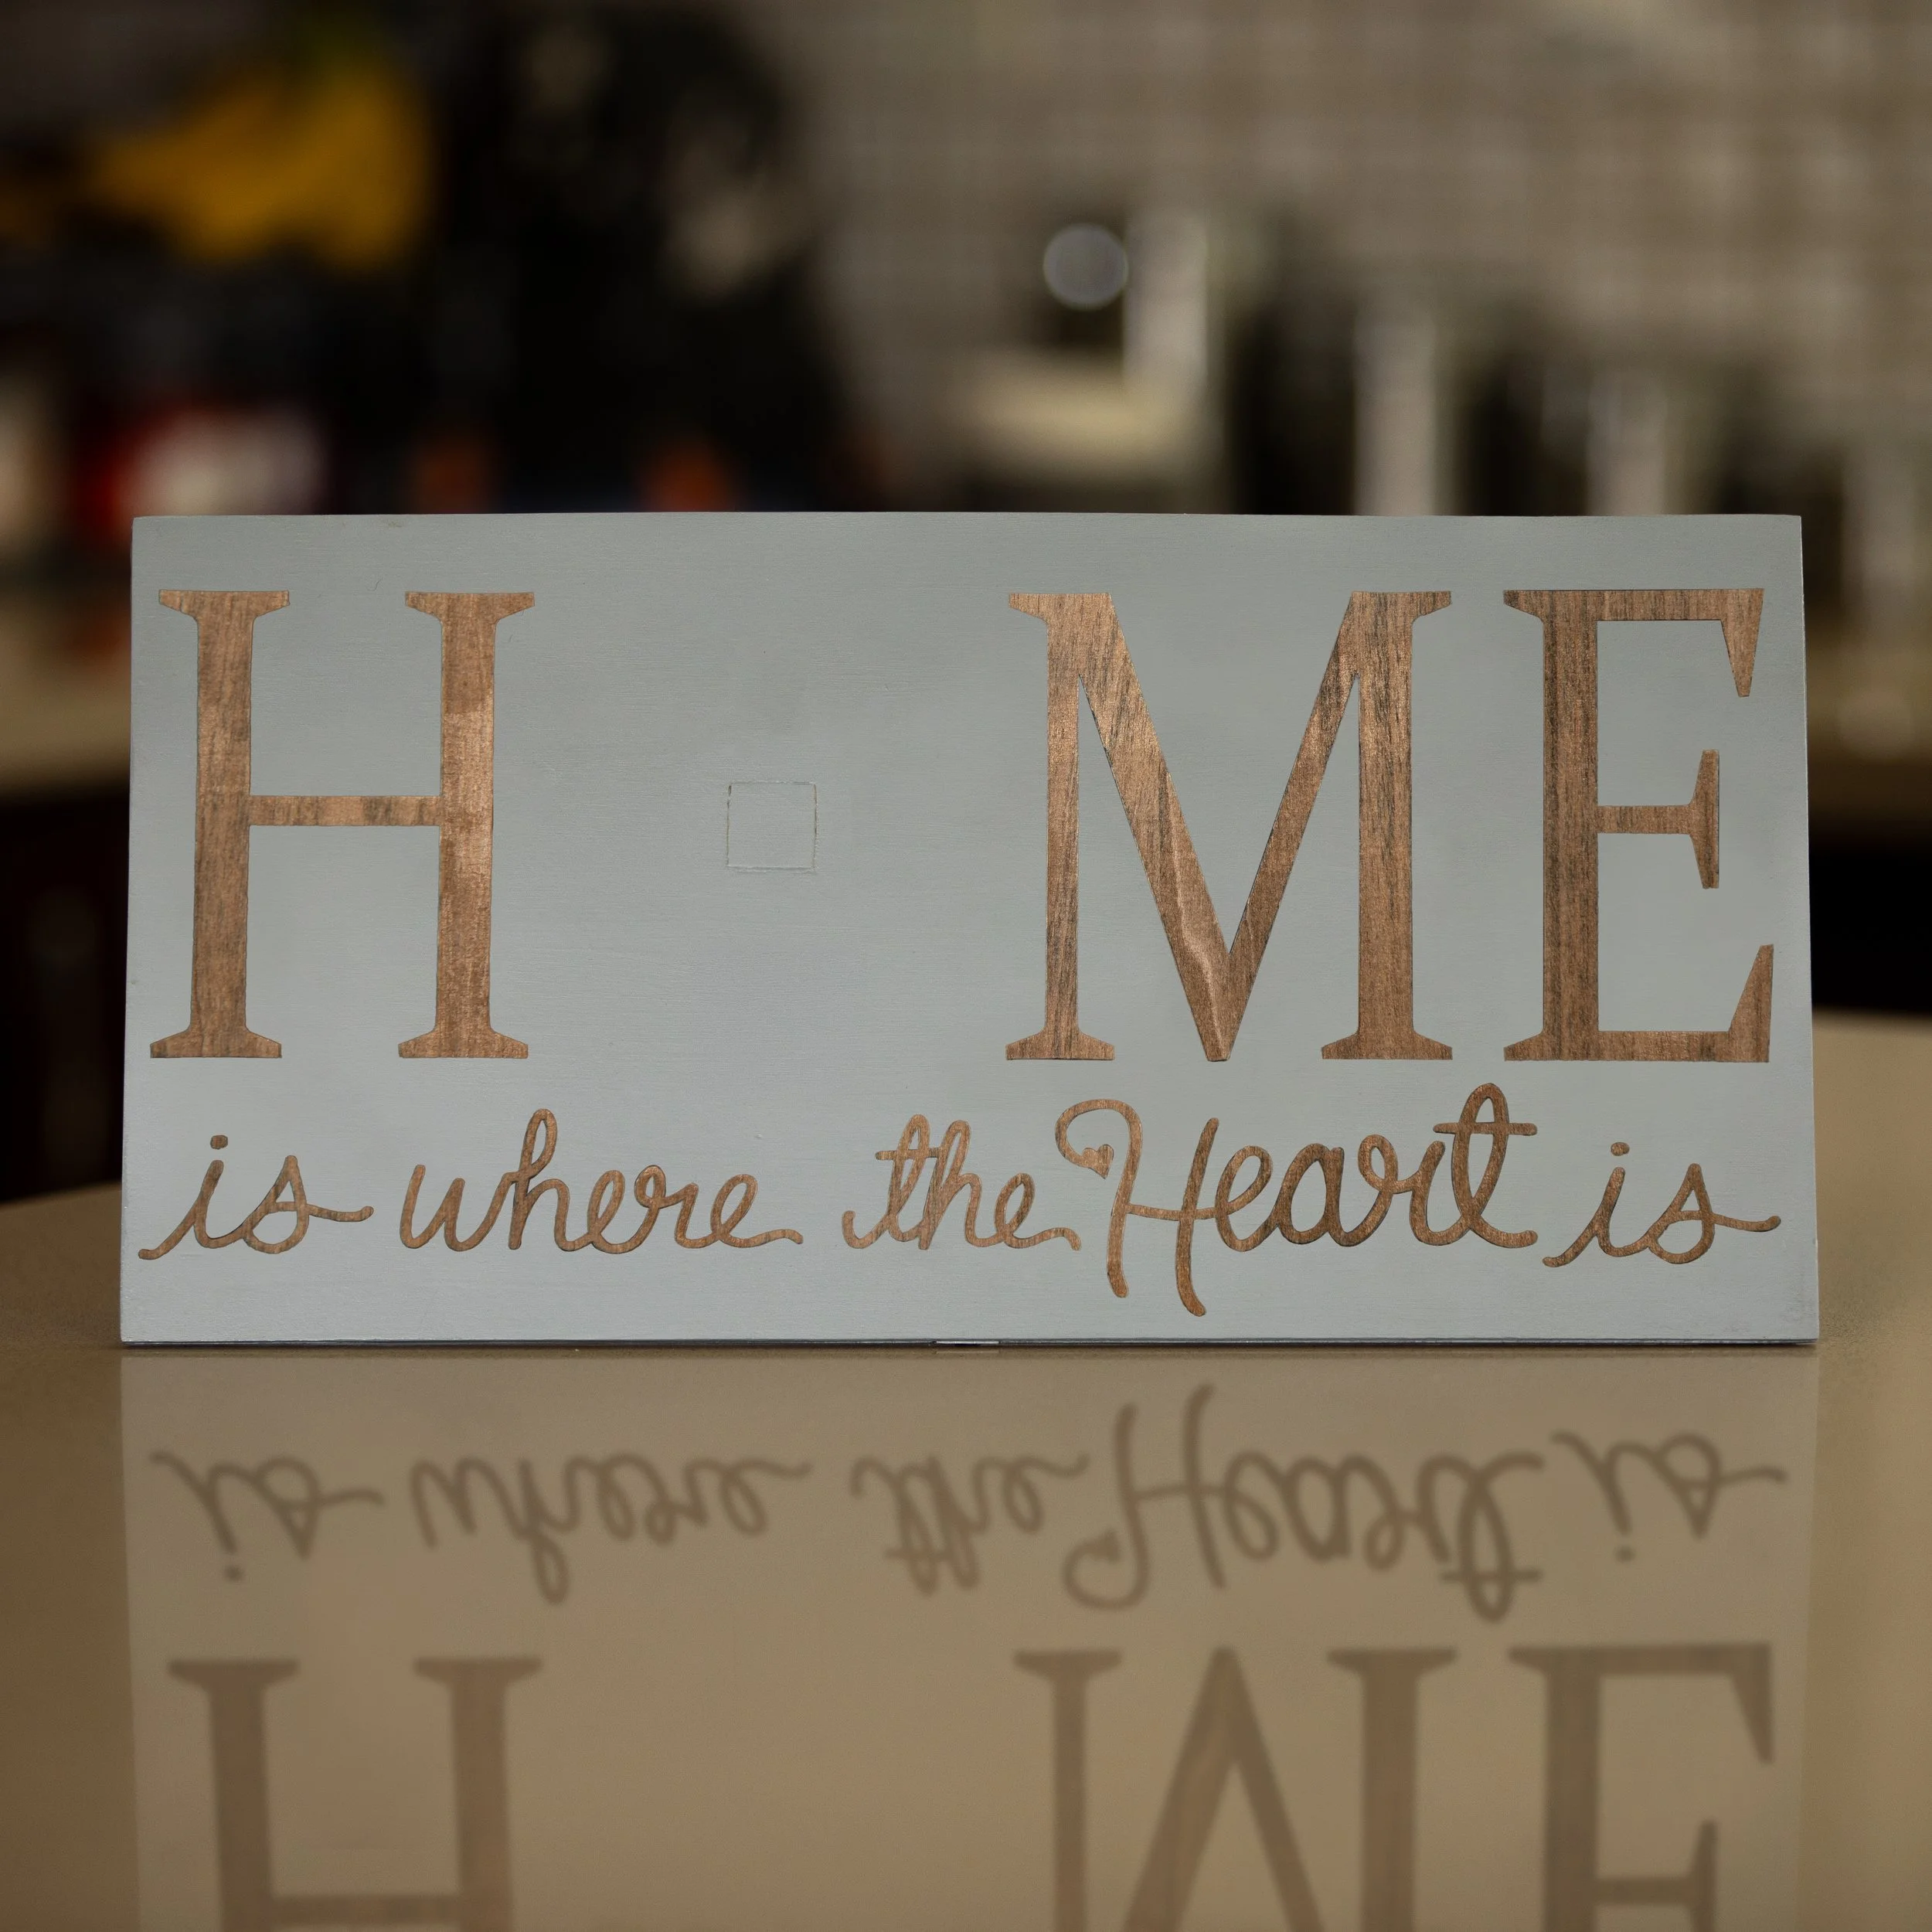 H ME
is where the Heart is